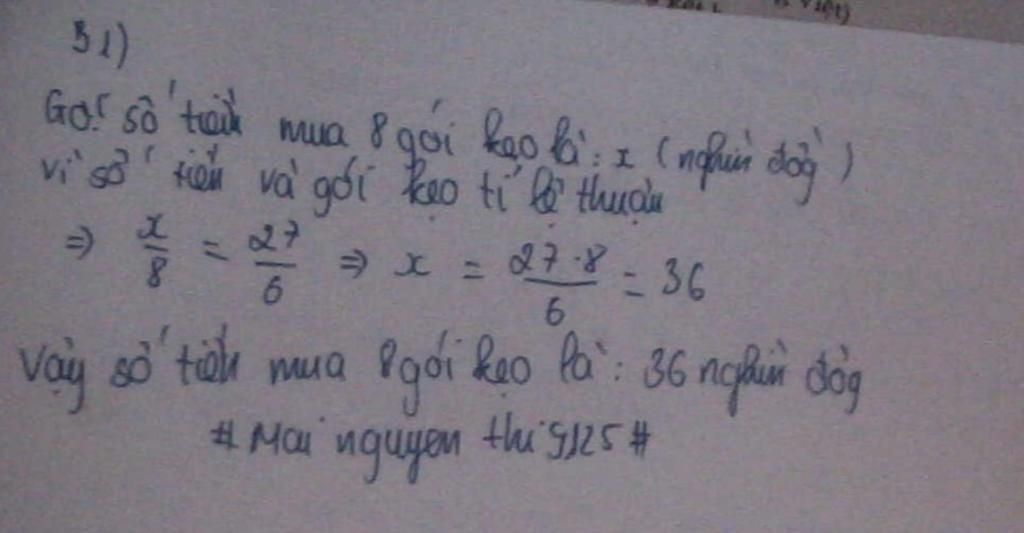 B1)
Gọi số tiền mua 8 gói kẹo là: x (nghìn đồng)
Vì số tiền và gói kẹo tỉ lệ thuận
⇒ x/8 = 27/6 ⇒ x = 27.8/6 = 36
Vậy số tiền mua 8 gói kẹo là: 36 nghìn đồng
# Mai nguyen thi